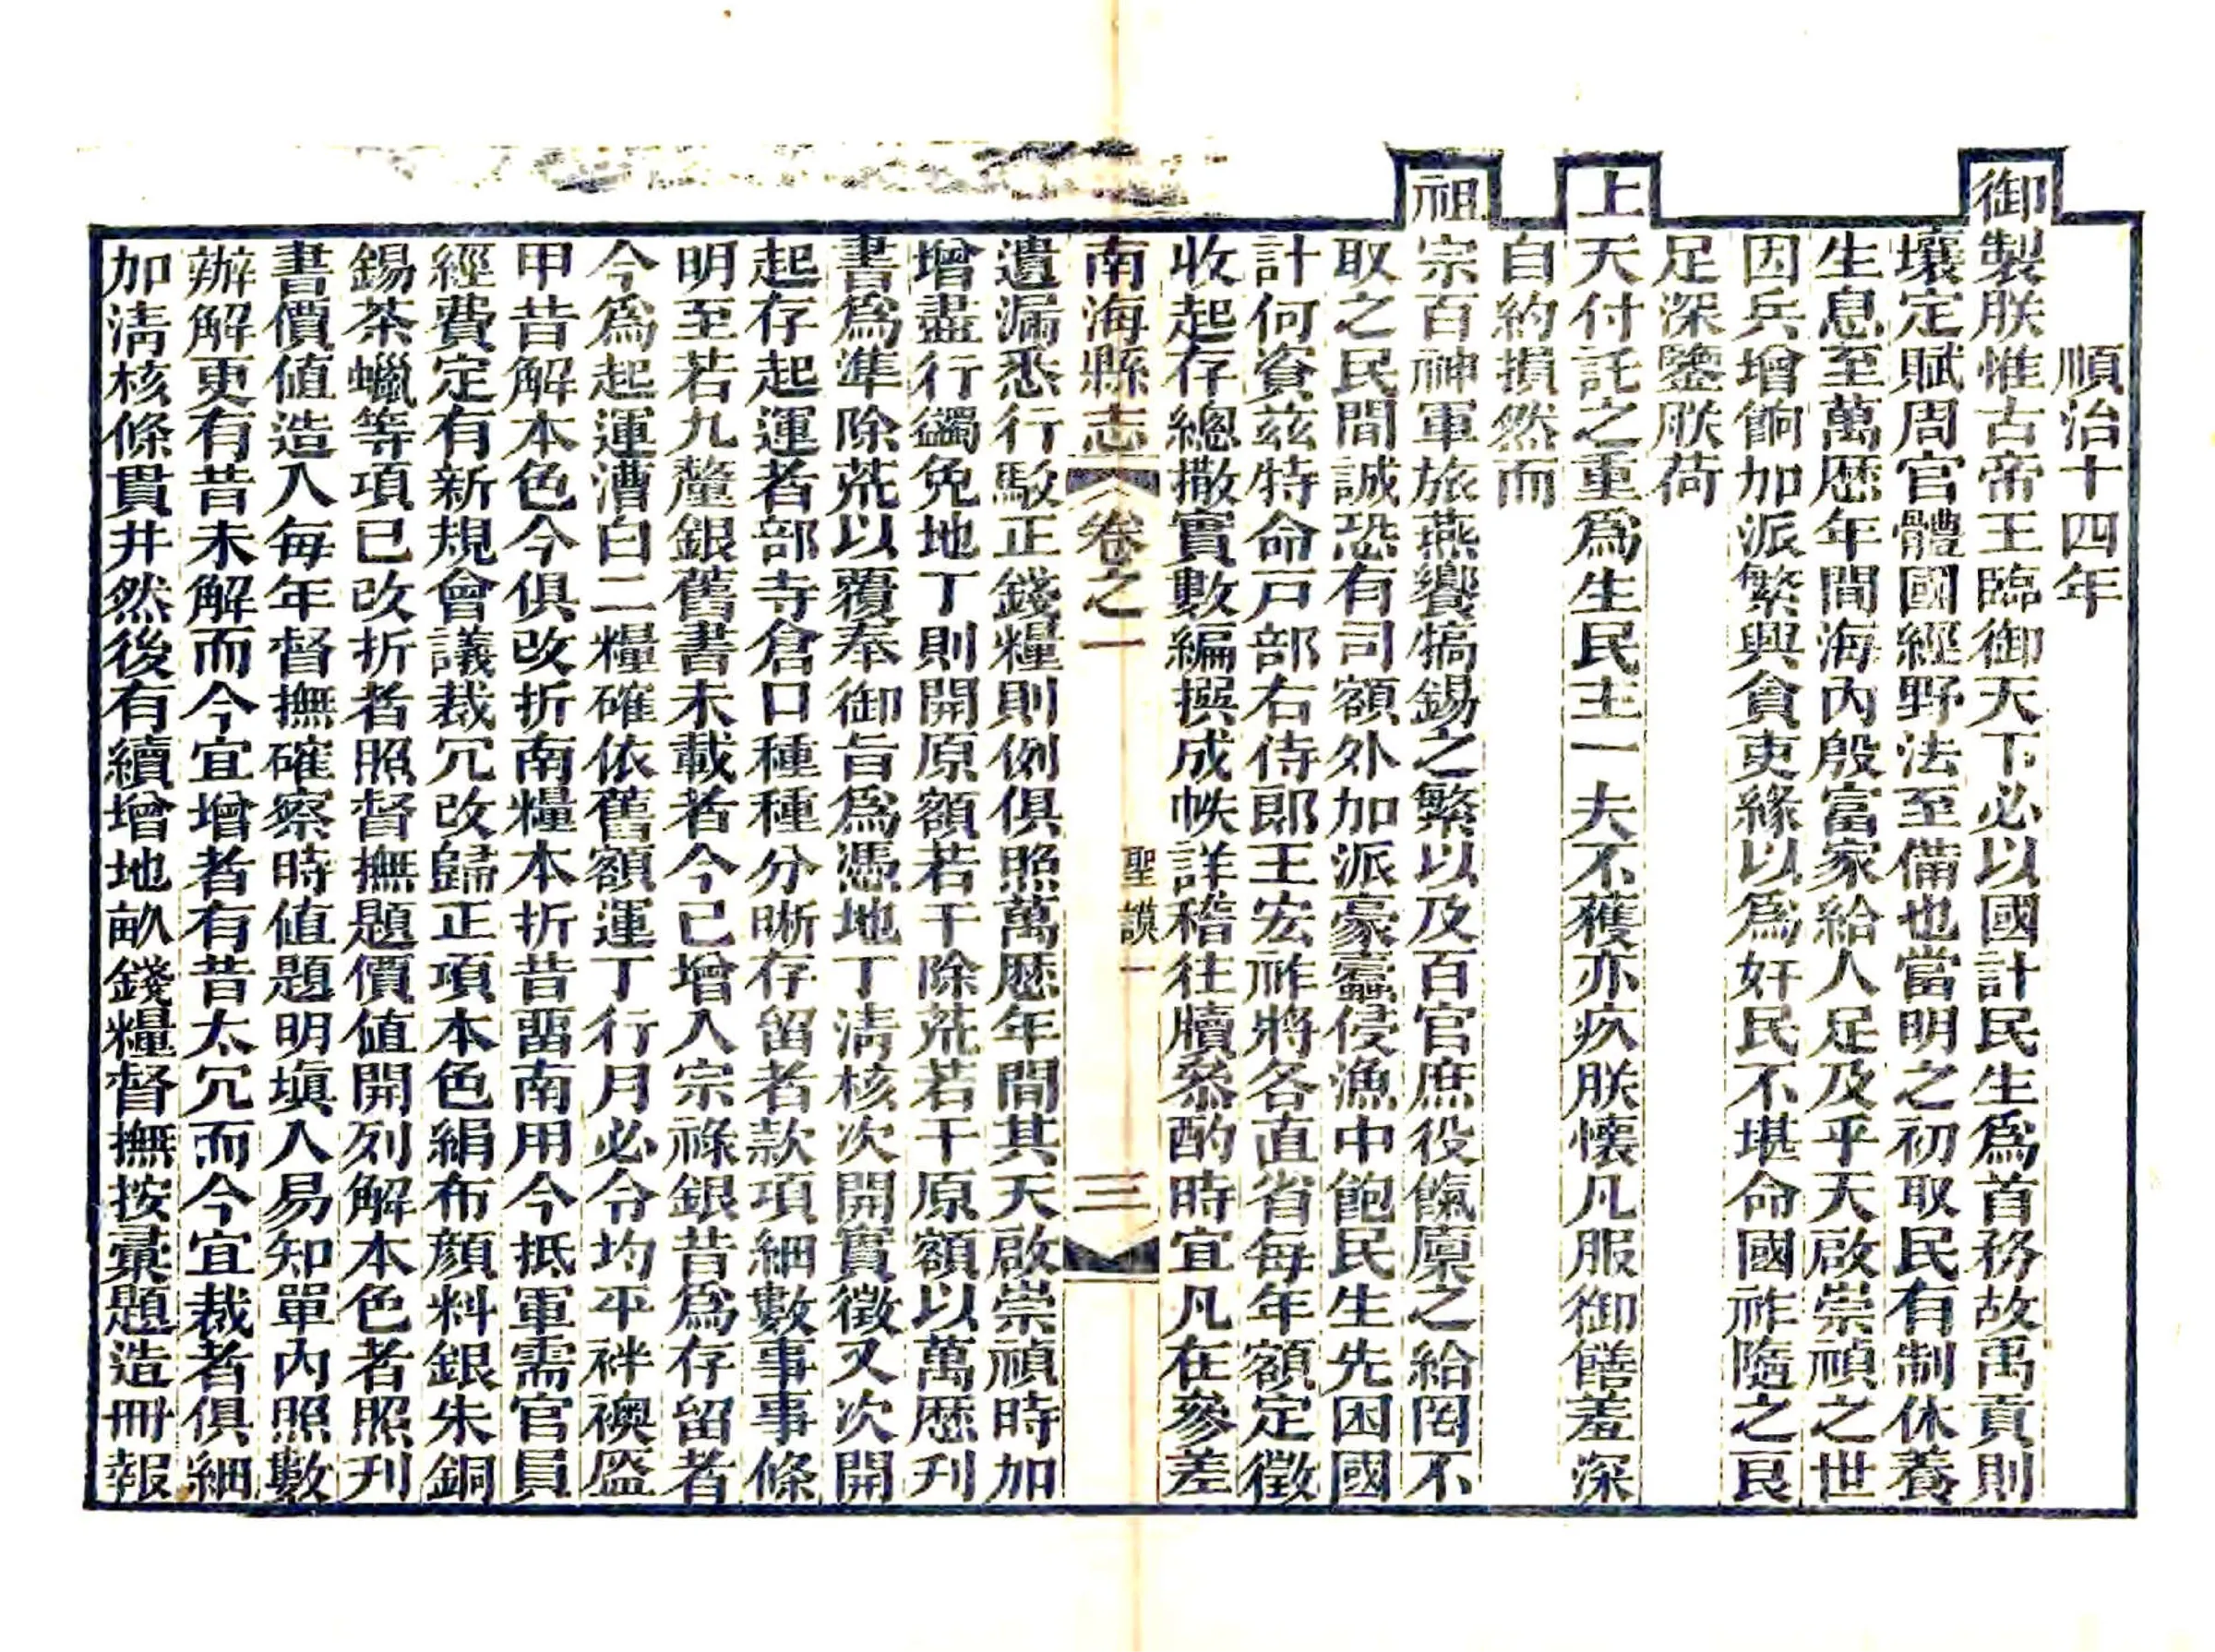 順治十四年
御製朕惟古帝王臨御天下必以國計民生爲首務故禹貢則
壤定賦周官體國經野法至備也當明之初取民有制休養
生息至萬歷年間海內殷富家給人足及乎天啟崇禎之世
因兵增餉加派繁興貪吏緣以爲奸民不堪命國祚隨之良
足深鑒朕荷
上天付託之重爲生民主一夫不獲亦疚朕懷凡服御饍羞深
自約損然而
祖宗百神軍旅燕饗犒錫之繁以及百官庶役餼廩之給罔不
取之民間誠恐有司額外加派豪蠹侵漁中飽民生先困國
計何資茲特命戸部右侍郎王宏祚將各直省每年額定徵
收起存總撒實數編撰成帙詳稽往牘叅酌時宜凡在參差
南海縣志 卷之一 聖謨一 三
遺漏悉行駁正錢糧則例俱照萬歷年間其天啟崇禎時加
增盡行蠲免地丁則開原額若干除荒若干原額以萬歷刋
書爲準除荒以覆奉御旨爲憑地丁淸核次開實徵又次開
起存起運者部寺倉口種種分晰存留者款項細數事事條
明至若九釐銀舊書未載者今已增入宗祿銀昔爲存留者
今爲起運漕白二糧確依舊額運丁行月必令均平袢襖盔
甲昔解本色今俱改折南糧本折昔畱南用今抵軍需官員
經費定有新規會議裁冗改歸正項本色絹布顔料銀朱銅
錫茶蠟等項已改折者照督撫題價值開列解本色者照刋
書價值造入每年督撫確察時値題明塡入易知單內照數
辦解更有昔未解而今宜增者有昔太冗而今宜裁者俱細
加淸核條貫井然後有續增地畝錢糧督撫按彙題造冊報